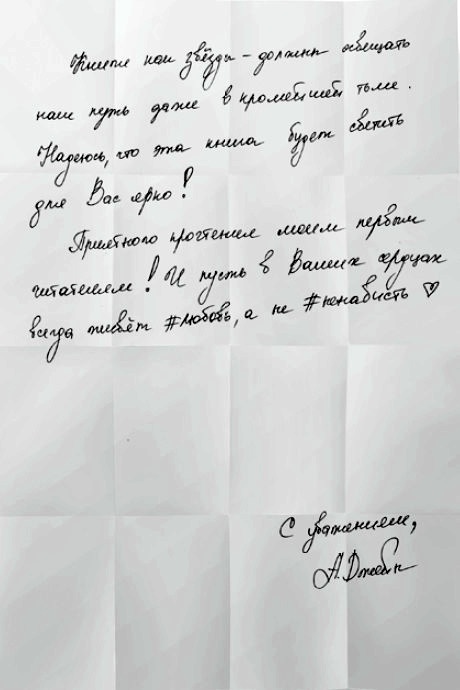 Книги как звёзды – должны освещать
наш путь даже в кромешной тьме.
Надеюсь, что эта книга будет светить
для Вас ярко!
Приятного прочтения моим первым
читателям! И пусть в Ваших сердцах
всегда живёт #любовь, а не #ненависть ♡
С уважением,
А.